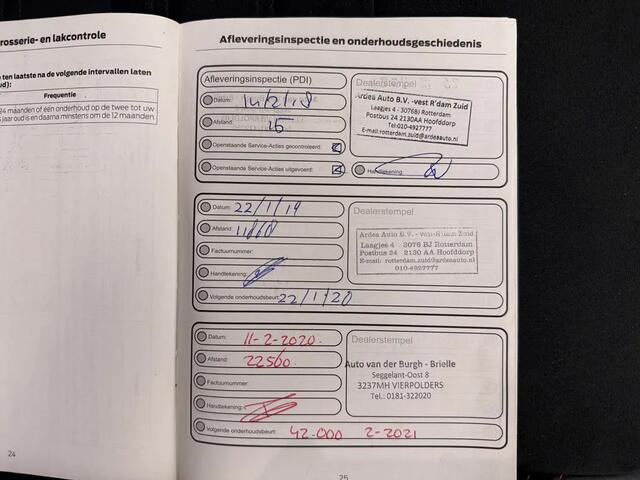 rosserie- en lakcontrole
ten laatste na de volgende intervallen laten
ud):
Frequentie
24 maanden of één onderhoud op de twee tot uw
jaar oud is en daarna minstens om de 12 maanden.
24
Afleveringsinspectie en onderhoudsgeschiedenis
Afleveringsinspectie (PDI)
Datum:
Afstand: 15
Openstaande Service-Acties gecontroleerd:
Openstaande Service-Acties uitgevoerd:
Dealerstempel
Ardea Auto B.V. -vest R'dam Zuid
Laagjes 4 - 3076BJ Rotterdam
Postbus 24 2130AA Hoofddorp
Tel:010-4927777
E-mail:rotterdam.zuid@ardeaauto.nl
Handtekening:
Datum: 22/1/19
Afstand: 11868
Factuurnummer:
Handtekening:
Volgende onderhoudsbeurt: 22/1/20
Dealerstempel
Ardea Auto B.V. - vest R'dam Zuid
Laagjes 4 3076 BJ Rotterdam
Postbus 24 2130 AA Hoofddorp
E-mail: rotterdam.zuid@ardeaauto.nl
010-4927777
Datum: 11-2-2020.
Afstand: 22560
Factuurnummer:
Handtekening:
Volgende onderhoudsbeurt: 42.000 2-2021
Dealerstempel
Auto van der Burgh - Brielle
Seggelant-Oost 8
3237MH VIERPOLDERS
Tel.: 0181-322020
25